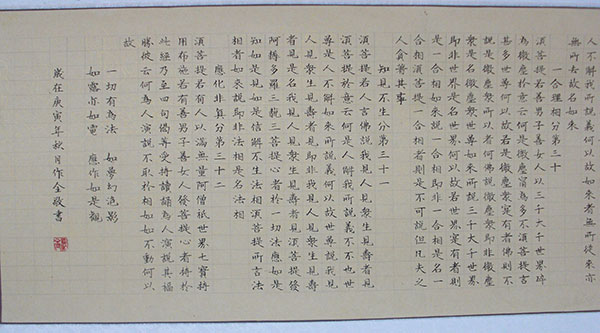 人不解我所說義何以故如來者無所從來亦
無所去故名如來
一合理相分第三十
須菩提若善男子善女人以三千大千世界碎
為微塵於意云何是微塵眾寧為多不須菩提言
甚多世尊何以故若是微塵眾寔有者佛則不
說是微塵眾所以者何佛說微塵眾即非微塵
眾是名微塵眾世尊如來所說三千大千世界
即非世界是名世界何以故若世界寔有者則
是一合相如來說一合相即非一合相是名一
合相須菩提一合相者則是不可說但凡夫之
人貪著其事
知見不生分第三十一
須菩提若人言佛說我見人見眾生見壽者見
須菩提於意云何是人解我所說義不不也世
尊是人不解如來所說義何以故世尊說我見
人見眾生見壽者見即非我見人見眾生見壽
者見是名我見人見眾生見壽者見須菩提發
阿耨多羅三藐三菩提心者於一切法應如是
知如是見如是信解不生法相須菩提所言法
相者如來說即非法相是名法相
應化非真分第三十二
須菩提若有人以滿無量阿僧祇世界七寶持
用布施若有善男子善女人發菩提心者持於
此經乃至四句偈等受持讀誦為人演說其福
勝彼云何為人演說不取於相如如不動何以
故
一切有為法 如夢幻泡影
如露亦如電 應作如是觀
歲在庚寅年秋月作全敬書